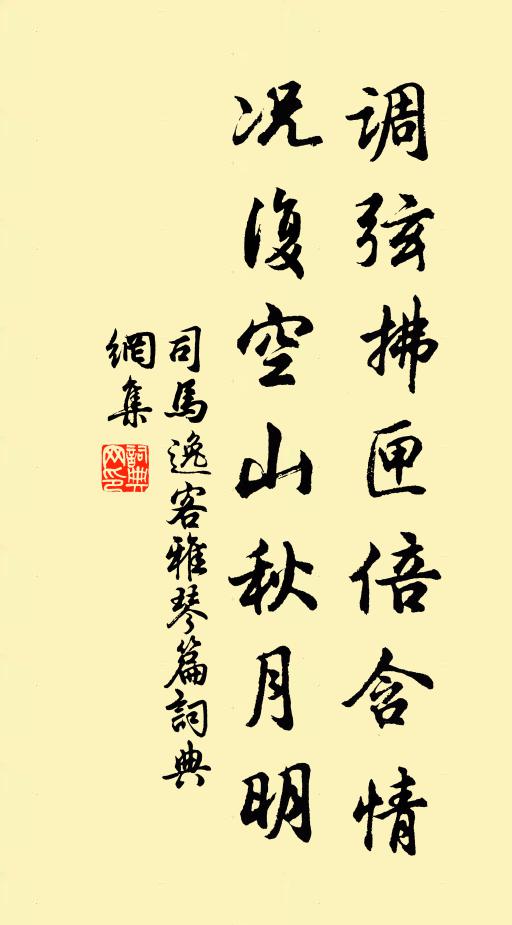 调弦拂匣倍含情
况復空山秋月明
司馬逸客雅琴篇詞典
網集
詞典
网印